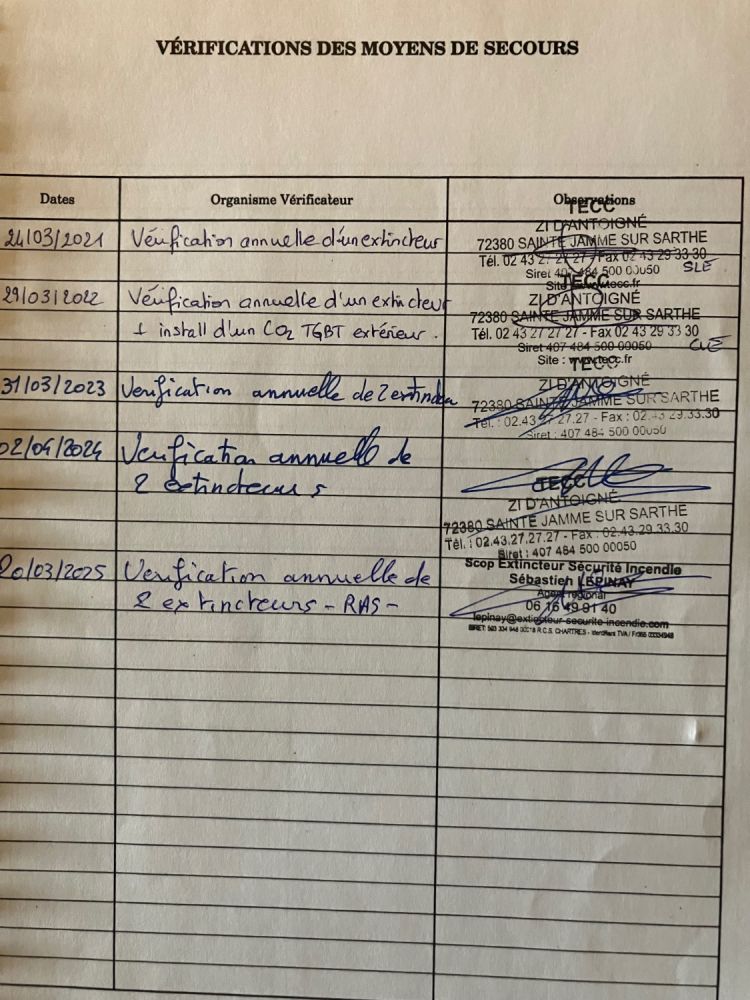 VÉRIFICATIONS DES MOYENS DE SECOURS
Dates Organisme Vérificateur Observations
TECC
ZI D'ANTOIGNÉ
24/03/2021 Vérification annuelle d'un extincteur 72380 SAINTE JAMME SUR SARTHE
Tél. 02 43 27 27 27 - Fax 02 43 29 33 30
Siret 407 484 500 00050 SLE
Site : www.tecc.fr
TECC
29/03/2022 Vérification annuelle d'un extincteur ZI D'ANTOIGNÉ
72380 SAINTE JAMME SUR SARTHE
+ install d'un CO2 TGBT extérieur. Tél. 02 43 27 27 27 - Fax 02 43 29 33 30
Siret 407 484 500 00050
Site : www.tecc.fr
TECC
31/03/2023 Verification annuelle de 2 extincteu ZI D'ANTOIGNÉ
72380 SAINTE JAMME SUR SARTHE
Tél. : 02.43.27.27.27 - Fax : 02.43.29.33.30
Siret : 407 484 500 00050
02/04/2024 Verification annuelle de
2 extincteurs TECC
ZI D'ANTOIGNÉ
72380 SAINTE JAMME SUR SARTHE
Tél. : 02.43.27.27.27 - Fax : 02.43.29.33.30
Siret : 407 484 500 00050
20/03/2025 Verification annuelle de Scop Extincteur Sécurité Incendie
Sébastien LEPINAY
Agent régional
2 extincteurs - RAS - 06 16 49 91 40
lepinay@extincteur-securite-incendie.com
R.C.S. CHARTRES - Identifiant TVA